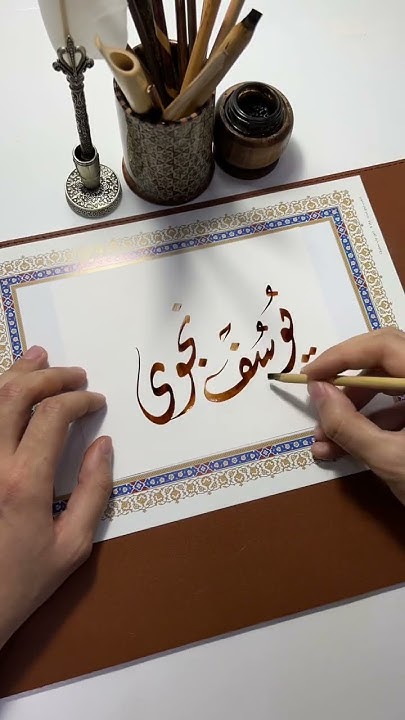 يُوسُف نجوى